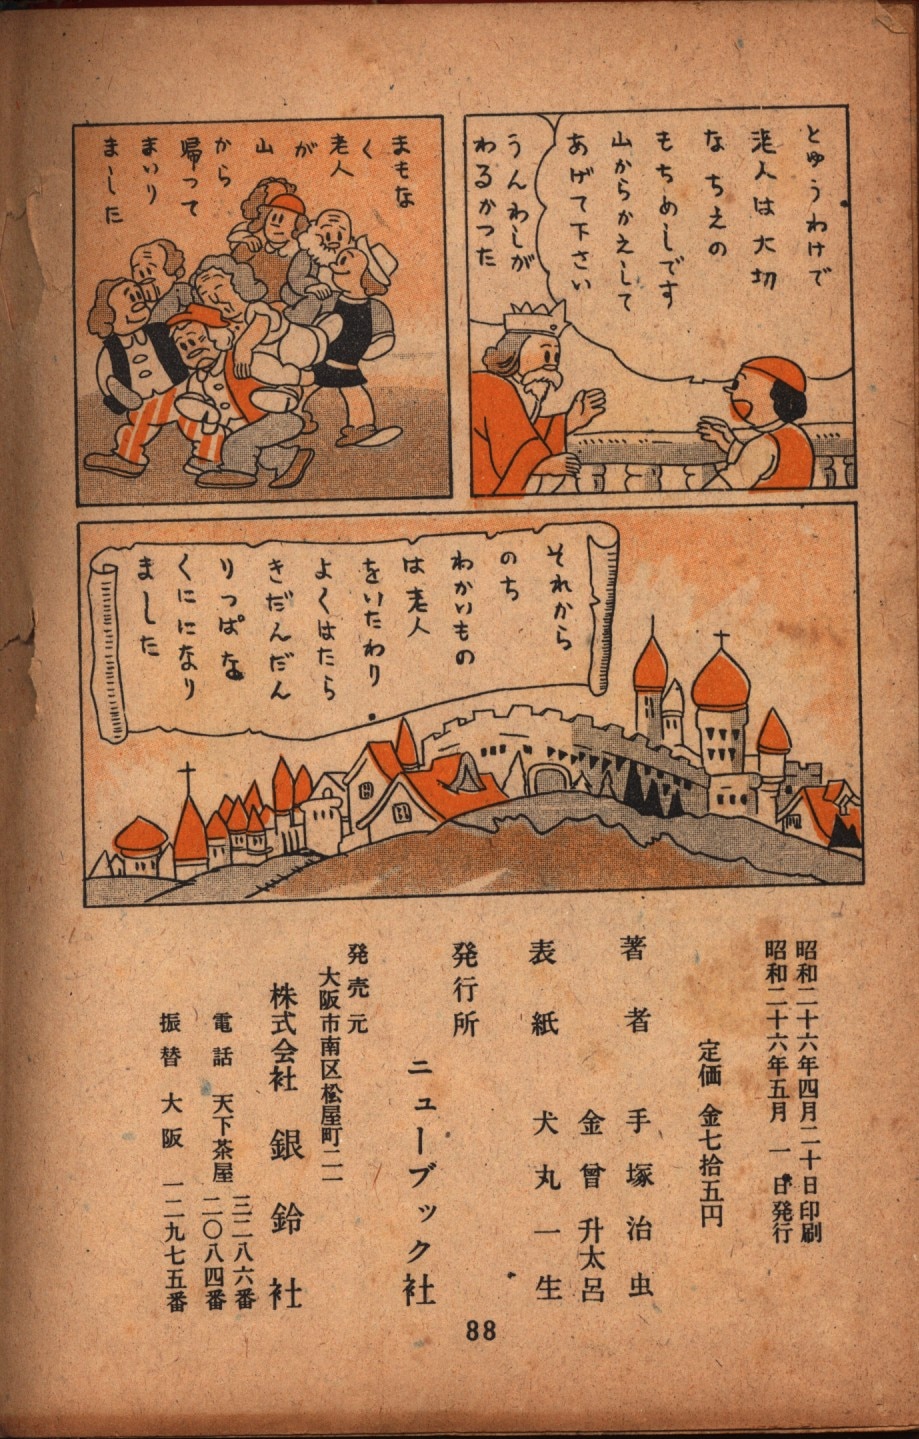 とゆうわけで
老人は大切
なちえの
もちぬしです
山からかえして
あげて下さい
うんわしが
わるかつた
まもな
く
老人
が
山
から
帰って
まいり
ました
それから
のち
わかいもの
は老人
をいたわり
よくはたら
きだんだん
りっぱな
くにになり
ました
昭和二十六年四月二十日印刷
昭和二十六年五月 一日発行
定価 金七拾五円
著者 手塚治虫
金曾升太呂
表紙 犬丸一生
発行所
ニューブック社
発売元
大阪市南区松屋町二一
株式会社 銀鈴社
電話 天下茶屋 三二八六番
二〇八四番
振替 大阪 一二九七五番
88